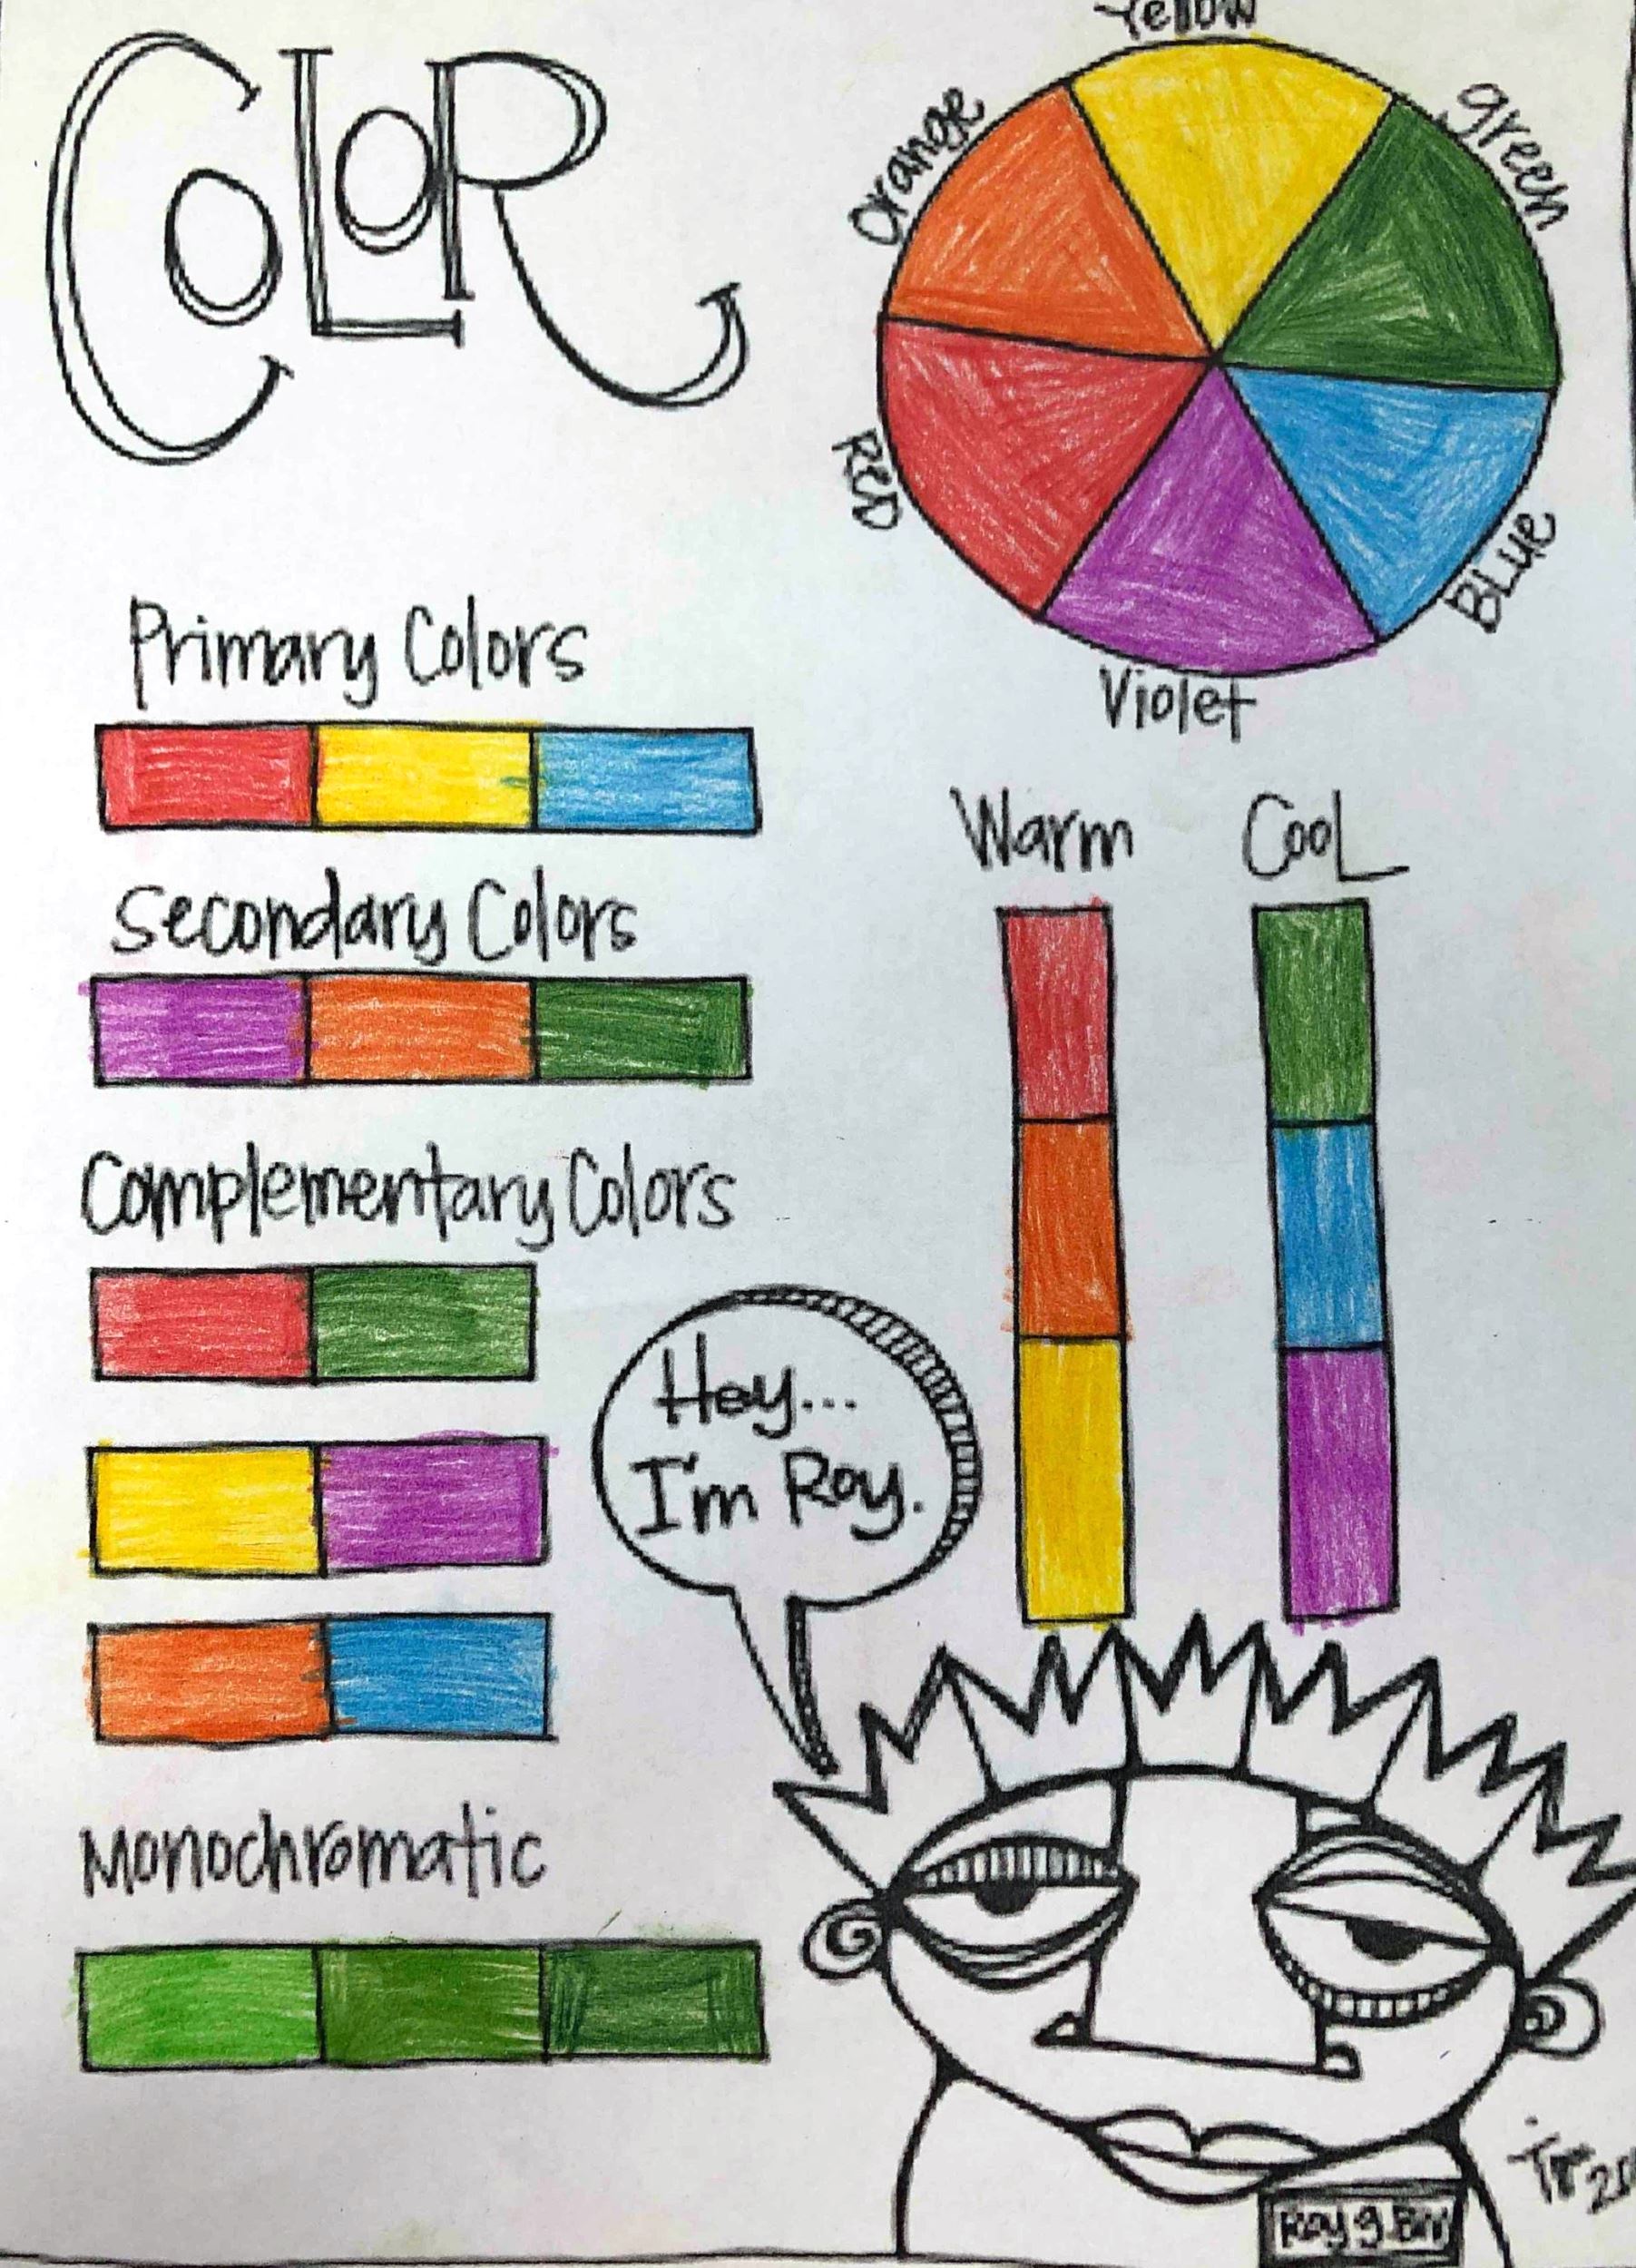 COLOR
Yellow
Orange
green
Red
BLue
Violet
Primary Colors
Secondary Colors
Complementary Colors
Monochromatic
Warm
CooL
Hey...
I'm Roy.
Roy g. Biv